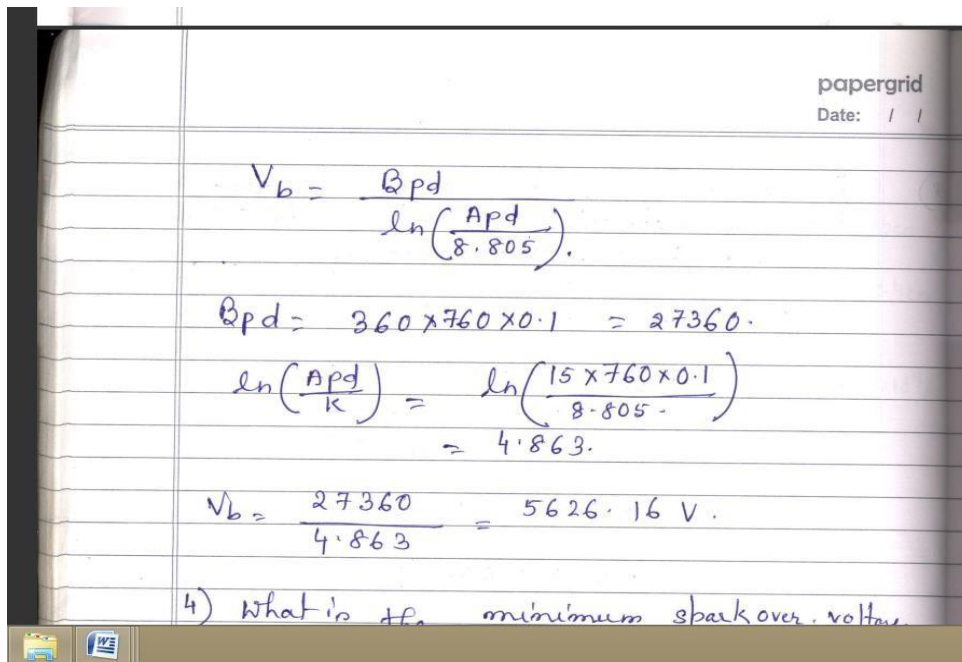 papergrid
Date: / /
V_b = Bpd / ln(Apd / 8.805).
Bpd = 360 × 760 × 0.1 = 27360.
ln(Apd / K) = ln(15 × 760 × 0.1 / 8.805)
= 4.863.
V_b = 27360 / 4.863 = 5626.16 V.
4) What is the minimum spark over voltage